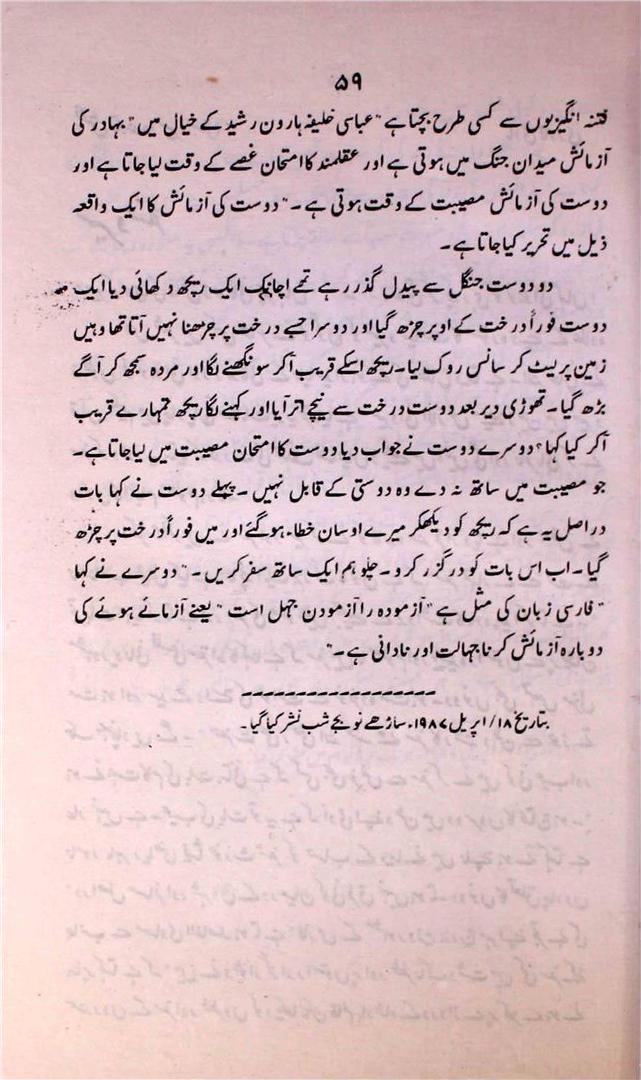 ۵۹
فتنہ انگیزیوں سے کسی طرح بچتا ہے "عباسی خلیفہ ہارون رشید کے خیال میں "بہادر کی
آزمائش میدان جنگ میں ہوتی ہے اور عقلمند کا امتحان غصے کے وقت لیا جاتا ہے اور
دوست کی آزمائش مصیبت کے وقت ہوتی ہے ۔" دوست کی آزمائش کا ایک واقعہ
ذیل میں تحریر کیا جاتا ہے۔
دو دوست جنگل سے پیدل گذر رہے تھے اچانک ایک ریچھ دکھائی دیا ایک
دوست فوراً درخت کے اوپر چڑھ گیا اور دوسرا جسے درخت پر چڑھنا نہیں آتا تھا وہیں
زمین پر لیٹ کر سانس روک لیا۔ ریچھ اسکے قریب آکر سونگھنے لگا اور مردہ سمجھ کر آگے
بڑھ گیا۔ تھوڑی دیر بعد دوست درخت سے نیچے اتر آیا اور کہنے لگا ریچھ تمہارے قریب
آکر کیا کہا؟ دوسرے دوست نے جواب دیا دوست کا امتحان مصیبت میں لیا جاتا ہے۔
جو مصیبت میں ساتھ نہ دے وہ دوستی کے قابل نہیں ۔ پہلے دوست نے کہا بات
دراصل یہ ہے کہ ریچھ کو دیکھکر میرے اوسان خطاء ہوگئے اور میں فوراً درخت پر چڑھ
گیا۔ اب اس بات کو درگزر کرو۔ چلو ہم ایک ساتھ سفر کریں ۔" دوسرے نے کہا
"فارسی زبان کی مثل ہے "آزمودہ را آزمودن جہل است" یعنے آزمائے ہوئے کی
دوبارہ آزمائش کرنا جہالت اور نادانی ہے۔"
بتاریخ ۱۸/ اپریل ۱۹۸۷ء ساڑھے نو بجے شب نشر کیا گیا۔